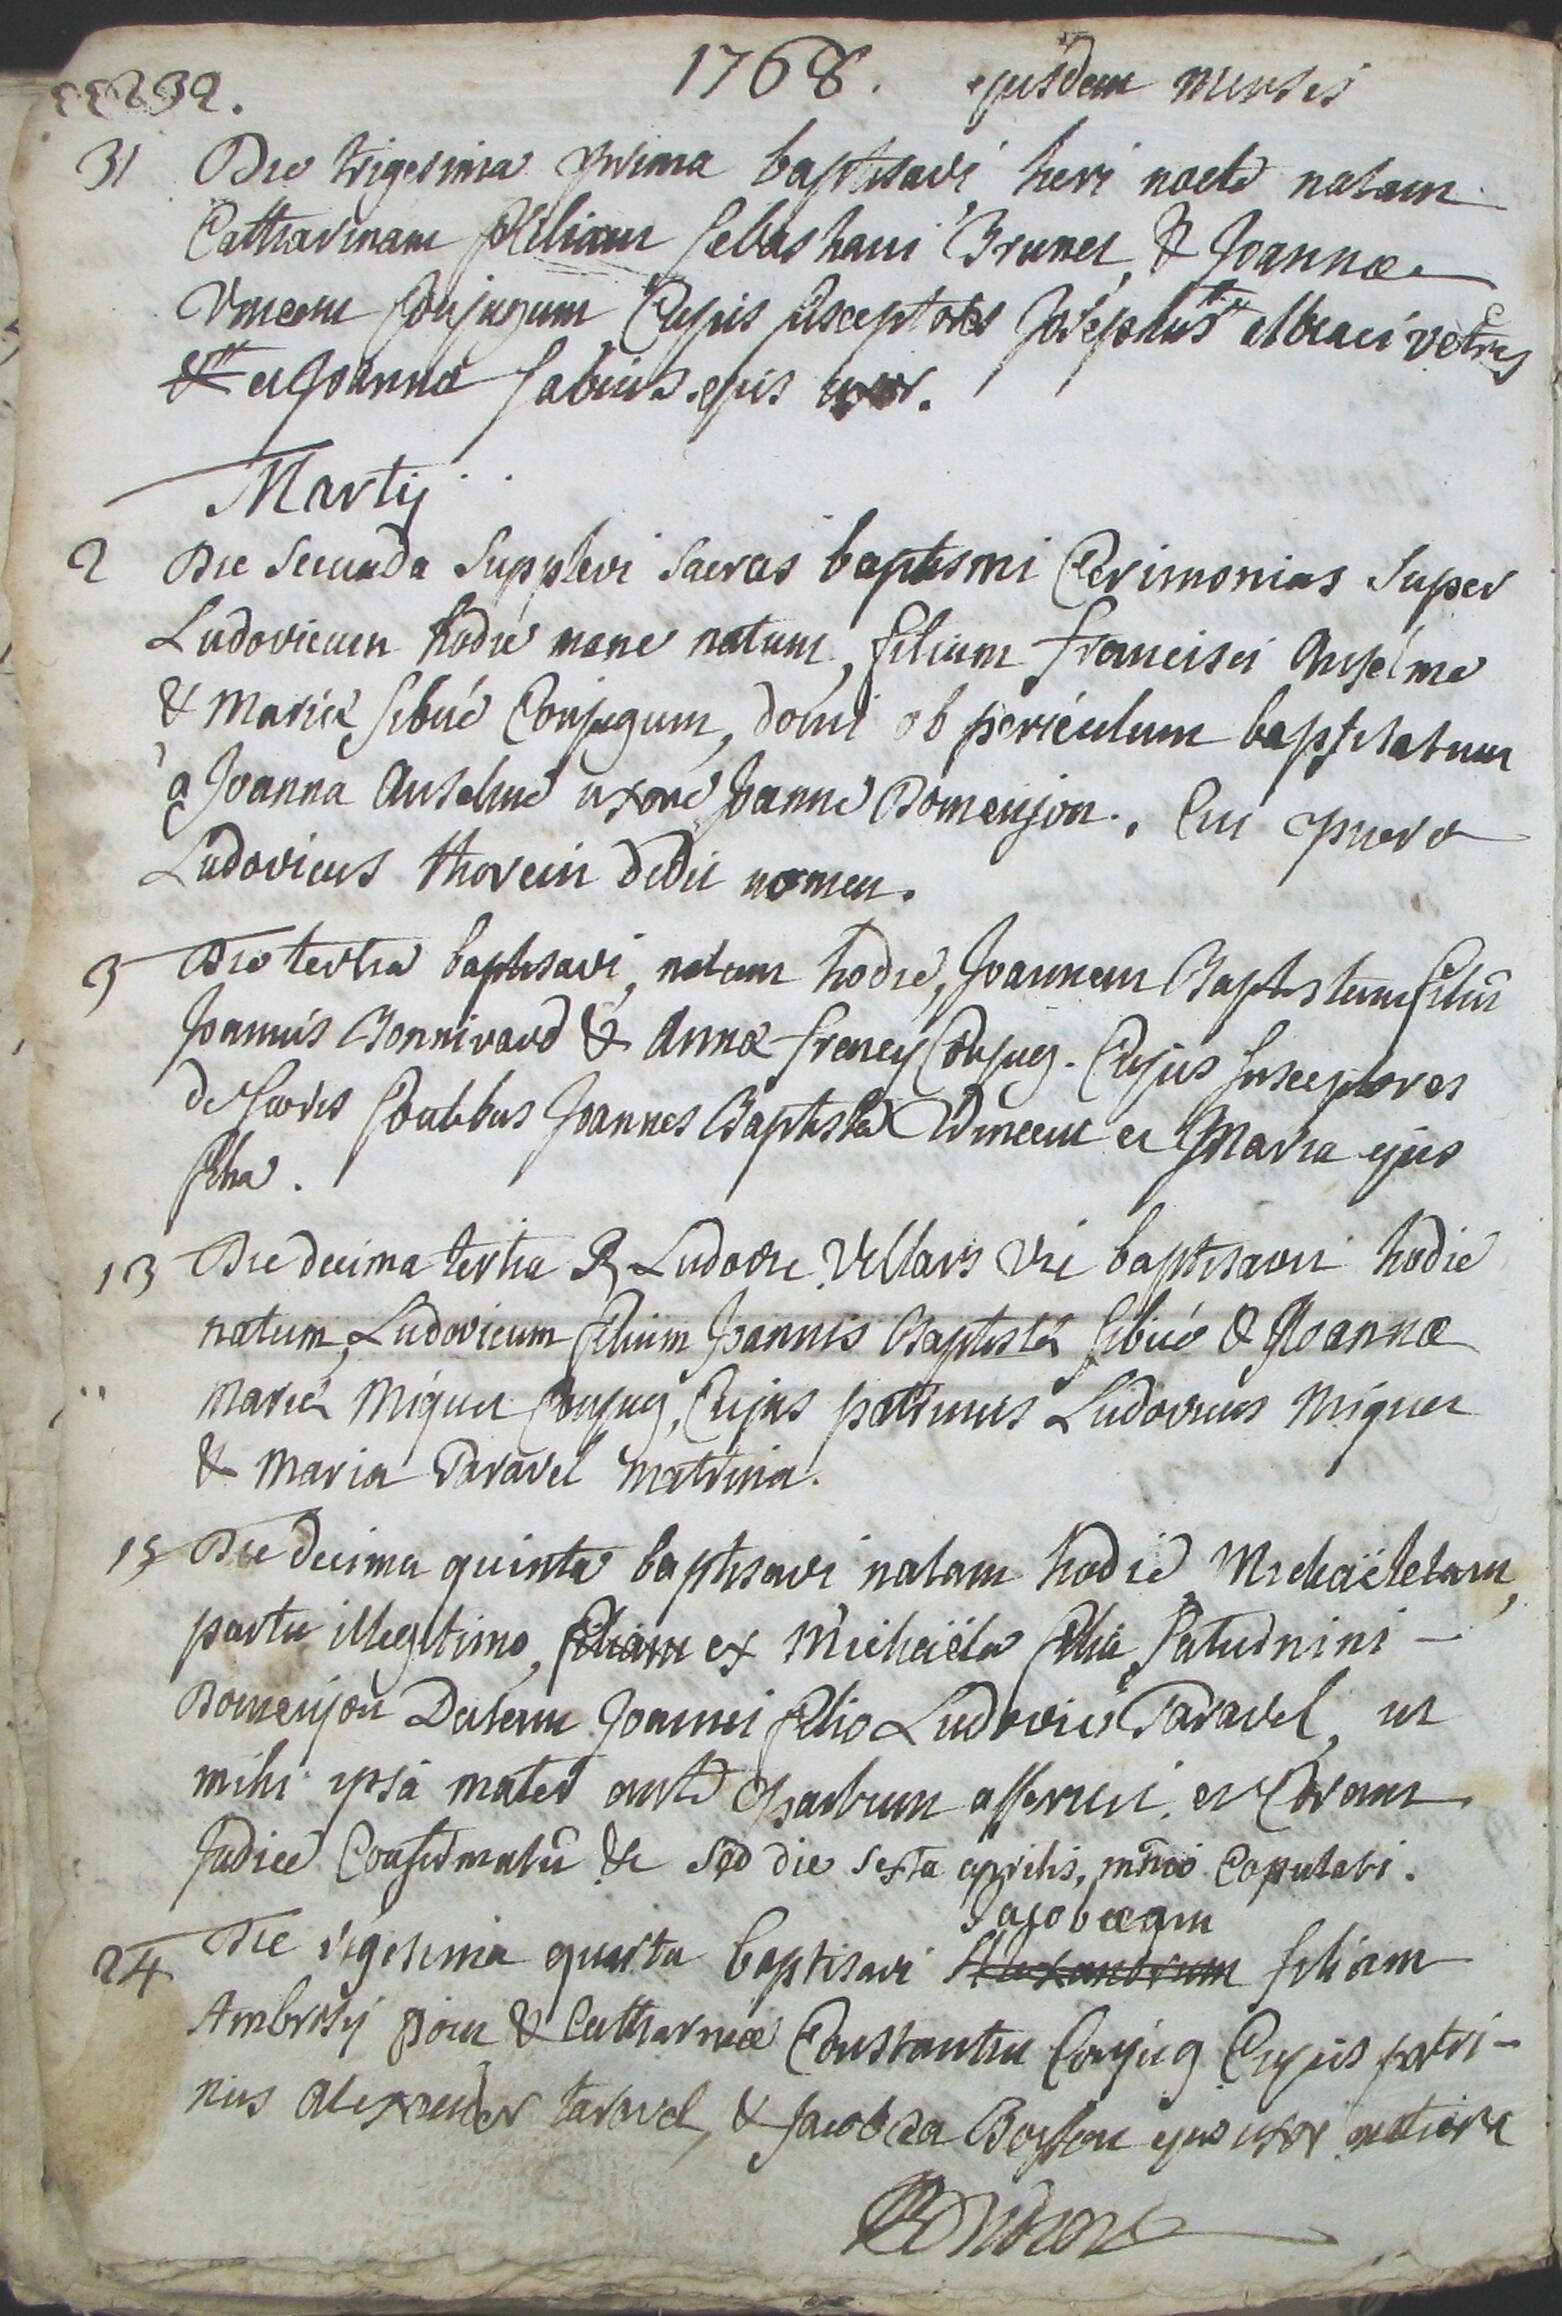 1768. ejusdem mensis
31 Die trigesima prima baptisavi, heri nocte natam
Catharinam filiam Sebastiani Brunet, & Joannæ
Vincent Conjugum Cujus susceptores Josephus
et Joanna ejus uxor.
Martij
2 Die secunda supplevi sacras baptismi Cerimonias super
Ludovicum hodie mane natum, filium francisci Anselme
& Mariæ sibué Conjugum, domi ob periculum baptisatum
à Joanna Anselme uxore Joannis Domenjon. Cui puero
Ludovicus thorein dedit nomen.
3 Die tertia baptisavi, natum hodie, Joannem Baptistam filiũ
Joannis Bonnivard & Annæ frency Conjug. Cujus susceptores
de sacris fontibus Joannes Baptista Vincent et Maria ejus
filia.
13 Die decima tertia R Ludovic Villars Vic baptisavi hodie
natum, Ludovicum filium Joannis Baptistæ sibué & Joannæ
Mariæ Miguet Conjug, Cujus patrinus Ludovicus Miguet
& Maria Taravel Matrina.
15 Die decima quinta baptisavi natam hodie Michaëletam,
partu illegitimo, filiam ex Michaëla filia Saturnini -
Domenjon Datam Joanni filio Ludovici Taravel, ut
mihi ipsa mater ante partum asseruit, et Coram
Judice Confirmatũ &c sed die sexta aprilis, mtrio Copulati.
Jacobæam
24 Die vigesima quarta baptisavi Alexandrum filiam
Ambrosij & Catharinæ Constantin Conjug Cujus patri-
nus Alexander taravel, & Jacobæa Boisson ejus uxor